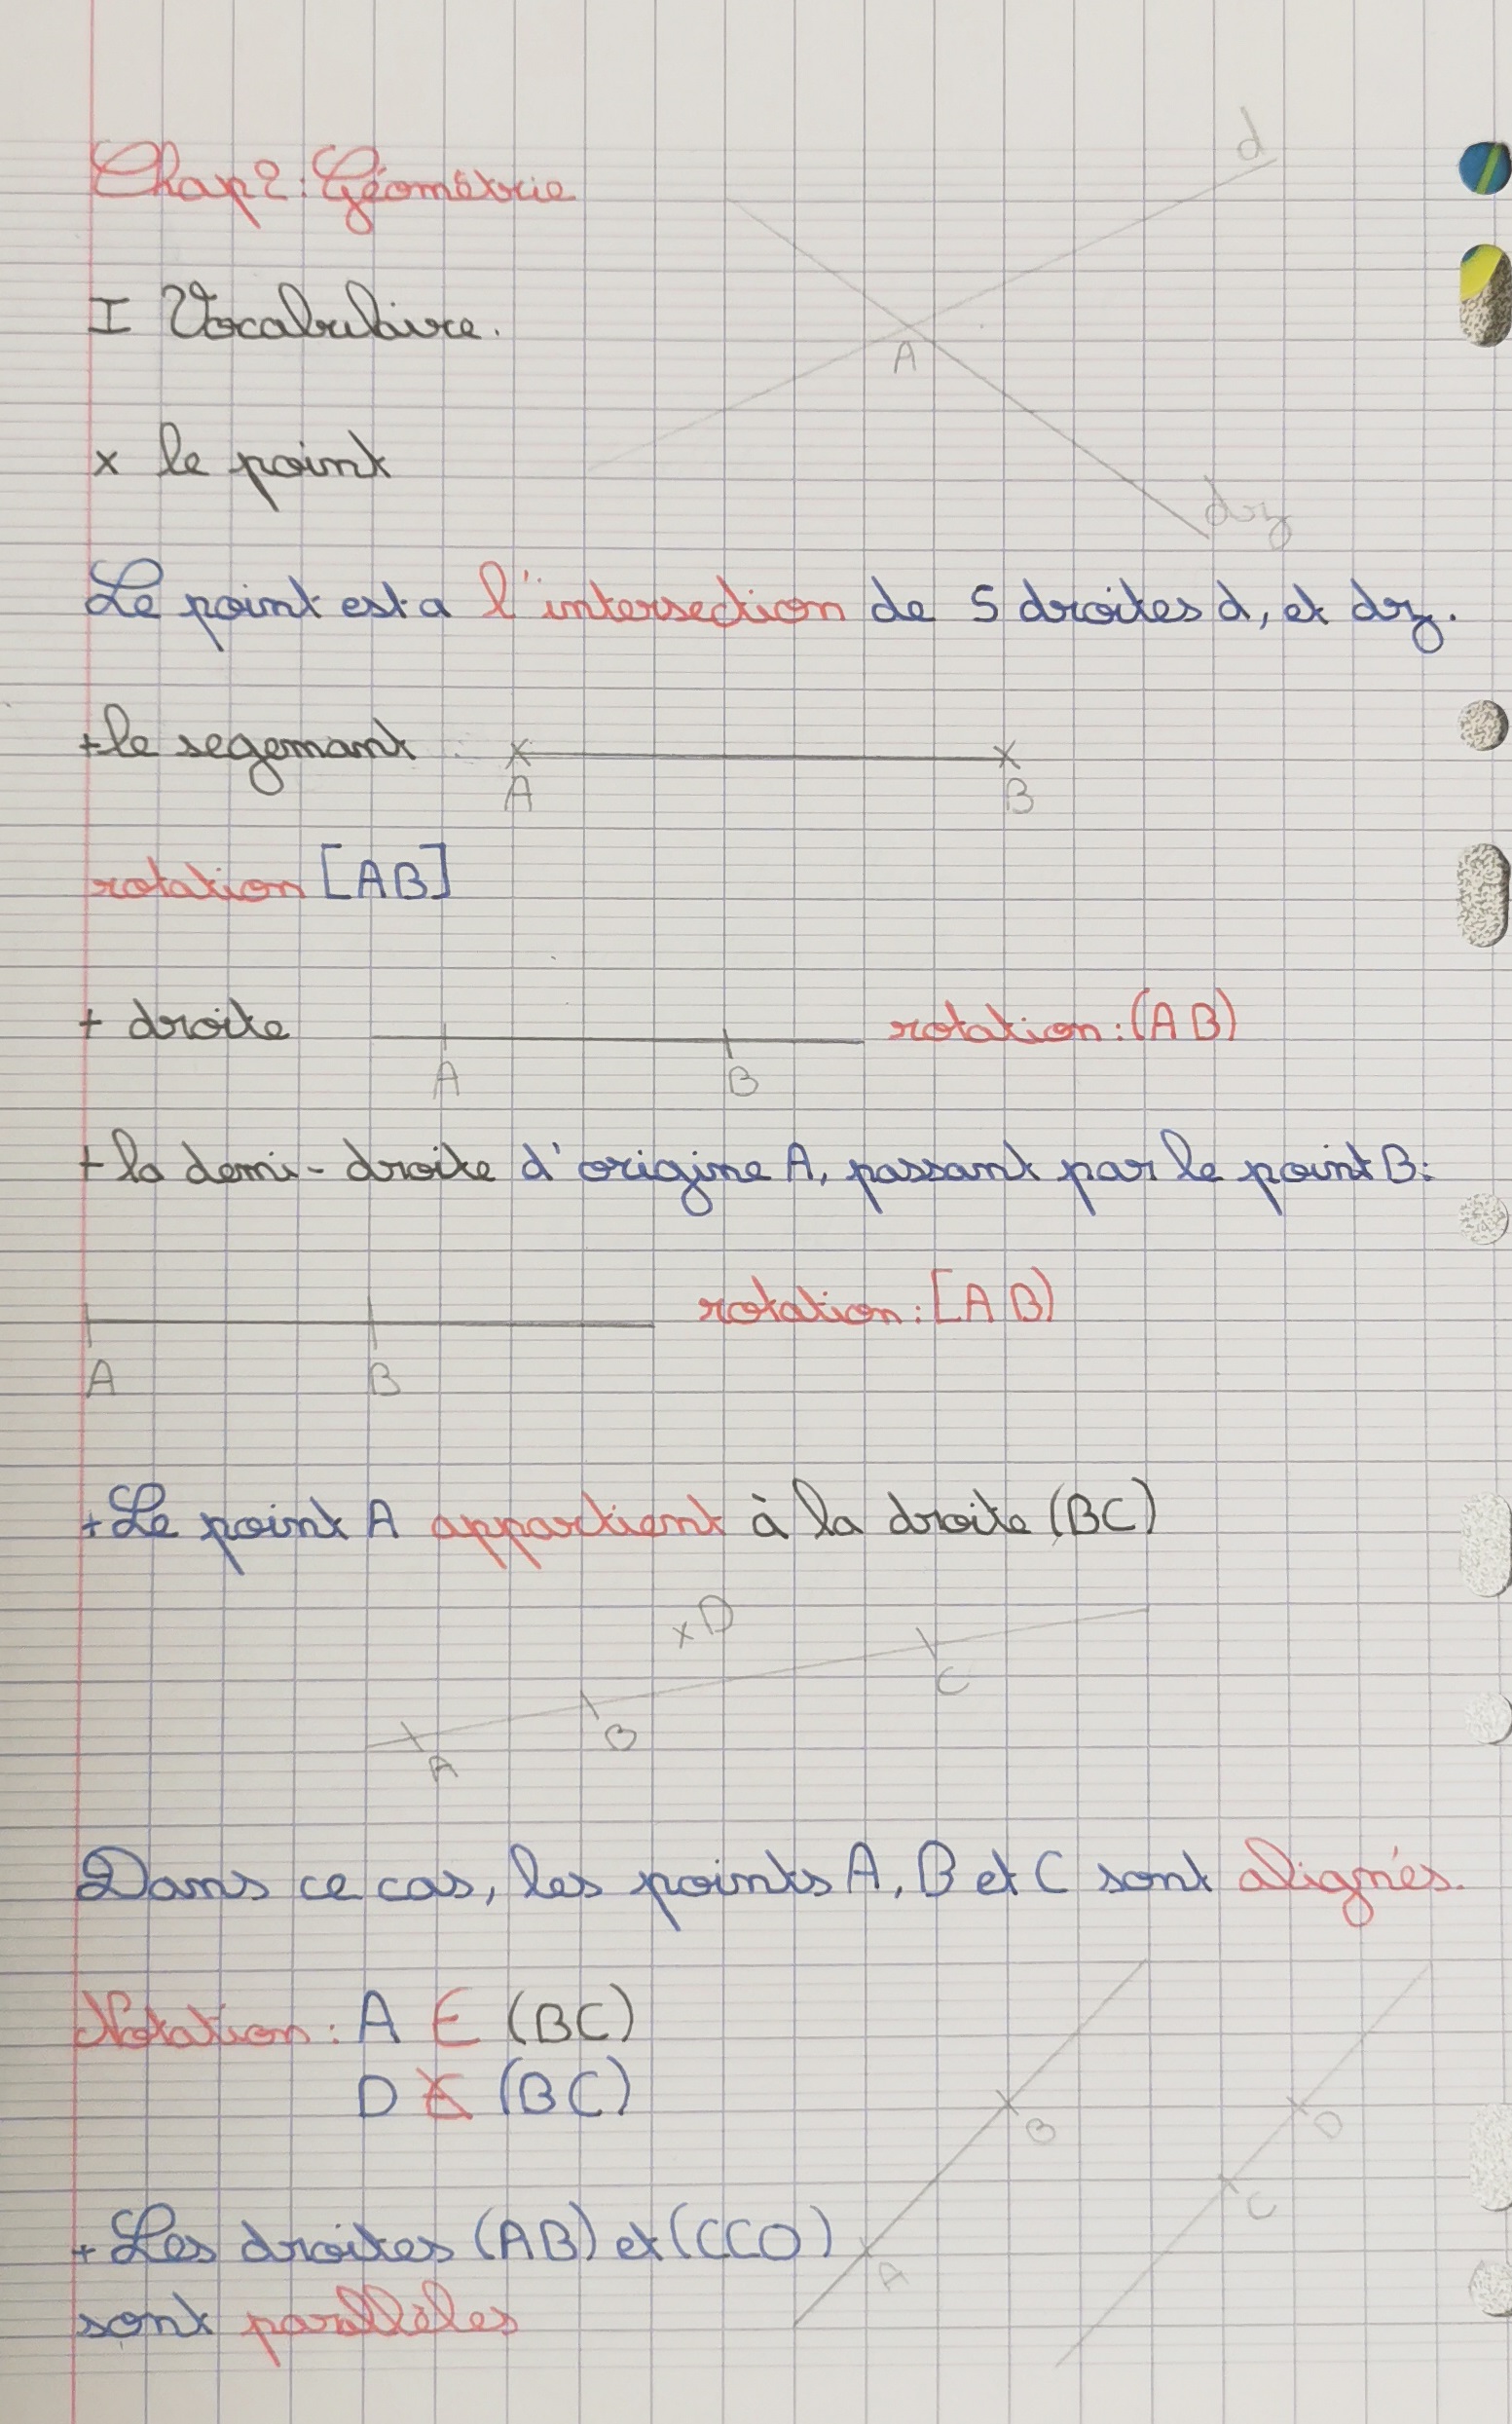 Chap 2 : Géométrie
d
I Vocabulaire.
A
x le point
dz
Le point est a l'intersection de 5 droites d, et dz.
+ le segemant
A B
rotation [AB]
+ droite rotation : (AB)
A B
+ la demi-droite d'origine A, passant par le point B :
rotation : [AB)
A B
+ Le point A appartient à la droite (BC)
x D
C
B
A
Dans ce cas, les points A, B et C sont alignés.
Notation : A ∈ (BC)
D ∉ (BC)
B D
C
+ Les droites (AB) et (CCO)
A
sont parallèles